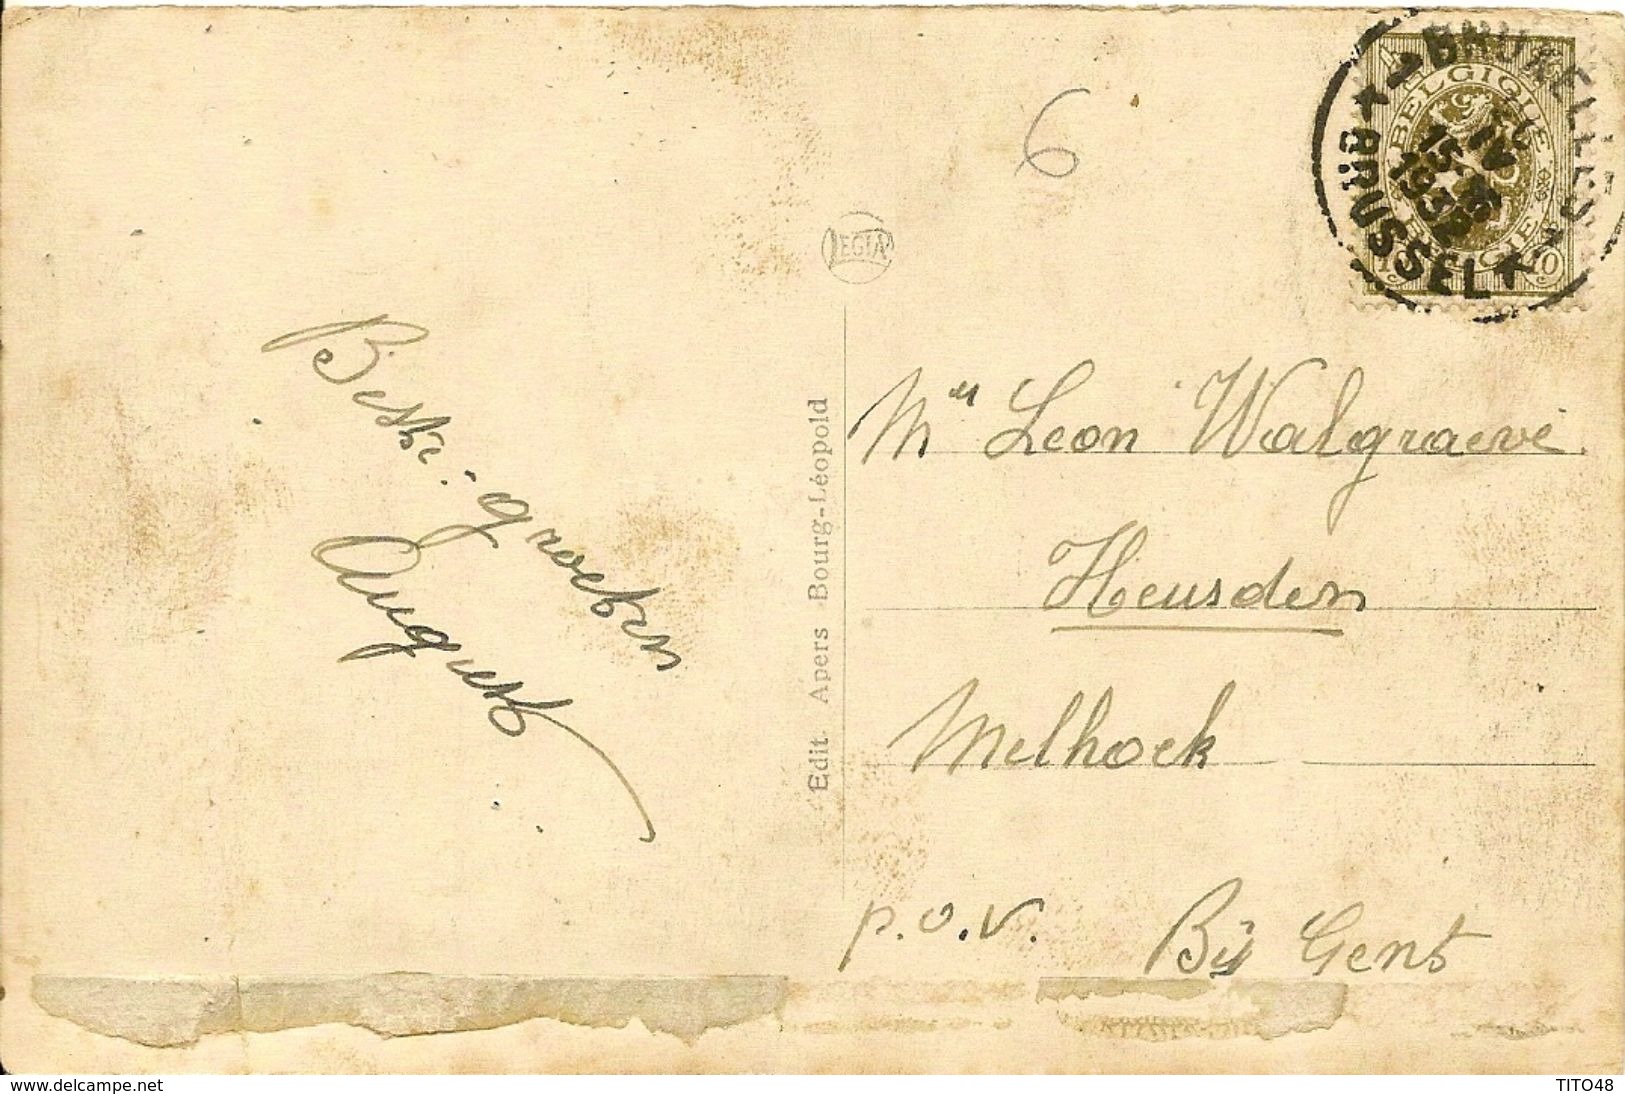 Beste groeten
August
LEGIA
Edit. Apers Bourg-Léopold
6
BRUXELLES 1
BRUSSEL
IV
15-16
1932
BELGIQUE
BELGIE
10
Mr Leon Walgraeve
Heusden
Melhoek
p.o.v. Bij Gent
www.delcampe.net
TITO48